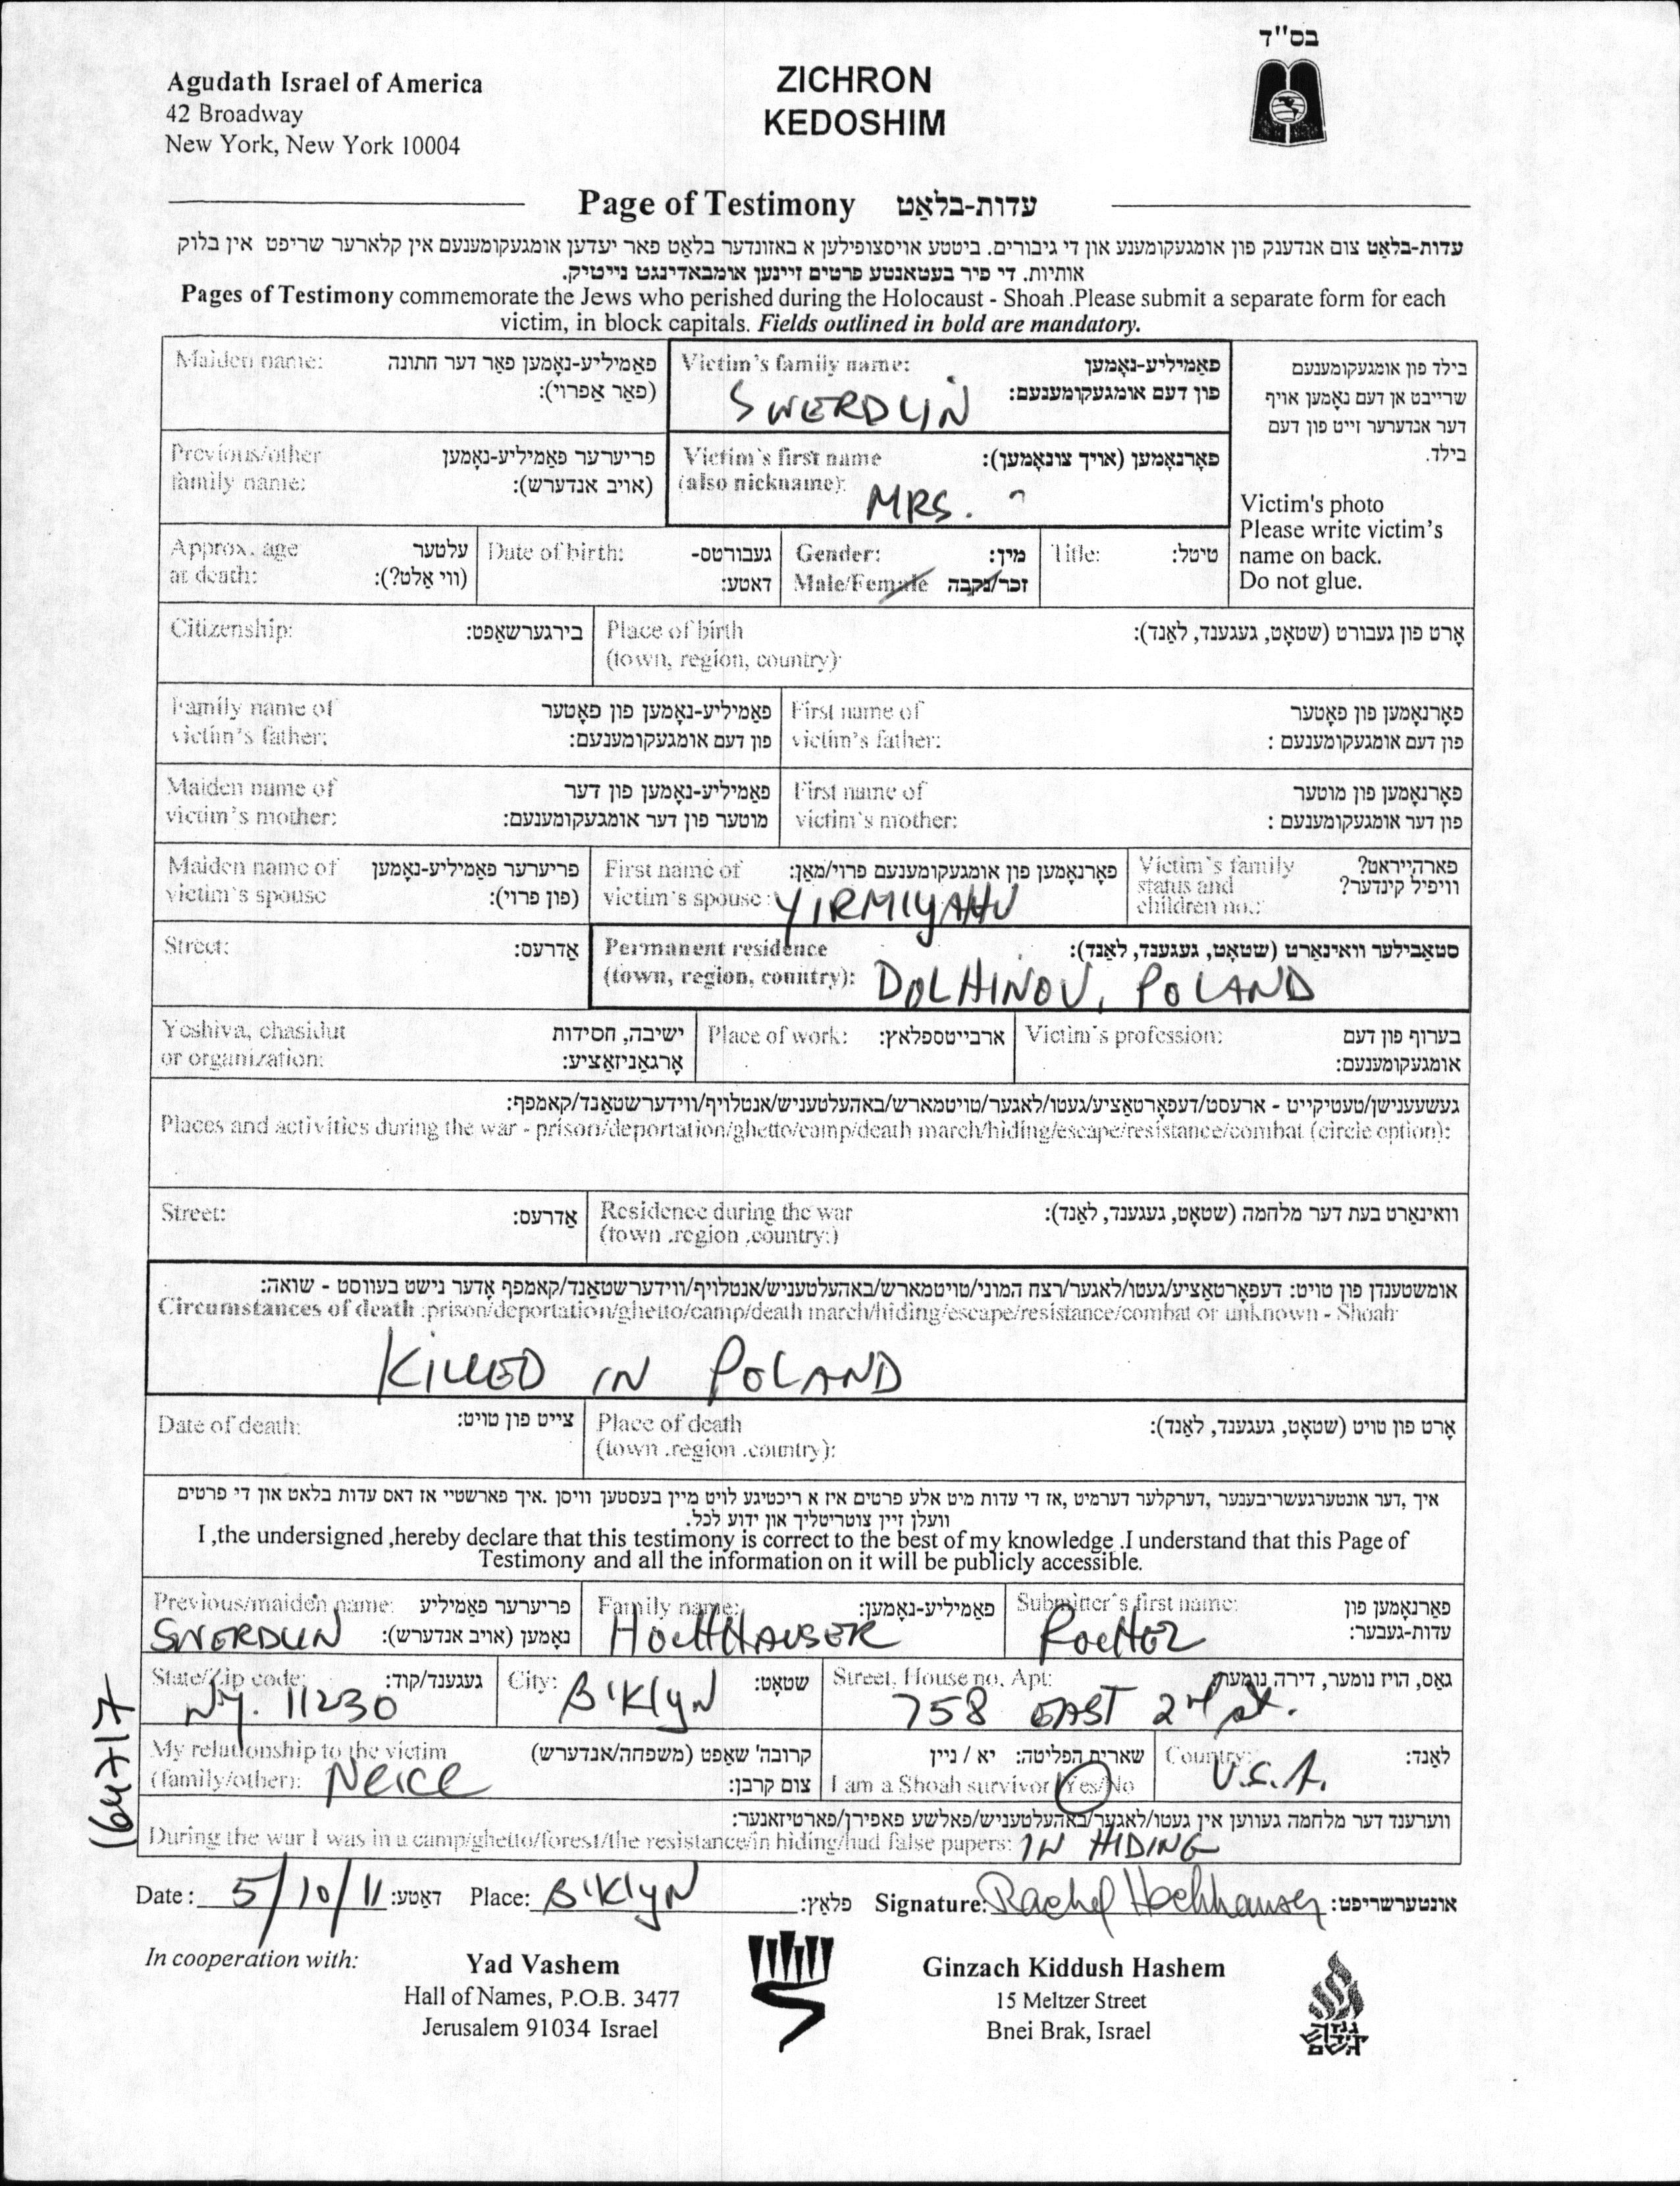 בס"ד
Agudath Israel of America
42 Broadway
New York, New York 10004
ZICHRON
KEDOSHIM
Page of Testimony עדות-בלאַט
עדות-בלאַט צום אנדענק פון אומגעקומענע און די גיבורים. ביטטע אויסצופילען א באזונדער בלאַט פאר יעדען אומגעקומענעם אין קלארער שריפט אין בלוק
אותיות. די פיר בעטאנטע פרטים זיינען אומבאדינגט נייטיק.
Pages of Testimony commemorate the Jews who perished during the Holocaust - Shoah .Please submit a separate form for each
victim, in block capitals. Fields outlined in bold are mandatory.
Maiden name: פאַמיליע-נאָמען פאַר דער חתונה
(פאַר אַפרוי):
Victim's family name: פאַמיליע-נאָמען
פון דעם אומגעקומענעם:
SWERDLIN
בילד פון אומגעקומענעם
שרייבט אן דעם נאָמען אויף
דער אנדערער זייט פון דעם
בילד.
Victim's photo
Please write victim's
name on back.
Do not glue.
Previous/other פריערער פאַמיליע-נאָמען
family name: (אויב אנדערש):
Victim's first name פאָרנאָמען (אויך צונאָמען):
(also nickname):
MRS. ?
Approx. age עלטער
at death: (ווי אַלט?):
Date of birth: געבורטס-
דאטע:
Gender: מין:
Male/Female זכר/נקבה
Title: טיטל:
Citizenship: בירגערשאַפט:
Place of birth אָרט פון געבורט (שטאָט, געגענד, לאַנד):
(town, region, country):
Family name of פאַמיליע-נאָמען פון פאָטער
victim's father: פון דעם אומגעקומענעם:
First name of פאָרנאָמען פון פאָטער
victim's father: פון דעם אומגעקומענעם :
Maiden name of פאַמיליע-נאָמען פון דער
victim's mother: מוטער פון דער אומגעקומענעם:
First name of פאָרנאָמען פון מוטער
victim's mother: פון דער אומגעקומענעם :
Maiden name of פריערער פאַמיליע-נאָמען
victim's spouse (פון פרוי):
First name of פאָרנאָמען פון אומגעקומענעם פרוי/מאַן:
victim's spouse : YIRMIYAHU
Victim's family פארהייראט?
status and וויפיל קינדער?
children no.:
Street: אַדרעס:
Permanent residence סטאַבילער וואוינארט (שטאָט, געגענד, לאַנד):
(town, region, country): DOLHINOV, POLAND
Yeshiva, chasidut ישיבה, חסידות
or organization: אָרגאַניזאַציע:
Place of work: ארבייטספלאץ:
Victim's profession: בערוף פון דעם
אומגעקומענעם:
געשעענישן/טעטיקייט - ארעסט/דעפאָרטאַציע/געטו/לאגער/טויטמארש/באהעלטעניש/אנטלויף/ווידערשטאַנד/קאמפף:
Places and activities during the war - prison/deportation/ghetto/camp/death march/hiding/escape/resistance/combat (circle option):
Street: אַדרעס:
Residence during the war וואוינארט בעת דער מלחמה (שטאָט, געגענד, לאַנד):
(town .region .country:)
אומשטענדן פון טויט: דעפאָרטאַציע/געטו/לאגער/רצח המוני/טויטמארש/באהעלטעניש/אנטלויף/ווידערשטאַנד/קאמפף אָדער נישט בעוווסט - שואה:
Circumstances of death :prison/deportation/ghetto/camp/death march/hiding/escape/resistance/combat or unknown - Shoah
KILLED IN POLAND
Date of death: צייט פון טויט:
Place of death אָרט פון טויט (שטאָט, געגענד, לאַנד):
(town .region .country):
איך ,דער אונטערגעשריבענער ,דערקלער דערמיט ,אז די עדות מיט אלע פרטים איז א ריכטיגע לויט מיין בעסטען וויסן .איך פארשטיי אז דאס עדות בלאט און די פרטים
וועלן זיין צוטריטליך און ידוע לכל.
I ,the undersigned ,hereby declare that this testimony is correct to the best of my knowledge .I understand that this Page of
Testimony and all the information on it will be publicly accessible.
Previous/maiden name: פריערער פאַמיליע
SWERDLIN נאָמען (אויב אנדערש):
Family name: פאַמיליע-נאָמען:
HOCHHAUSER
Submitter's first name: פאַרנאָמען פון
עדות-געבער:
ROCHEL
State/Zip code: געגענד/קוד:
NY. 11230
City: שטאָט:
B'KLYN
Street, House no, Apt: גאַס, הויז נומער, דירה נומער:
758 EAST 2nd St.
My relationship to the victim קרובה' שאַפט (משפחה/אנדערש)
(family/other): Neice צום קרבן:
שארית הפליטה: יא / ניין
I am a Shoah survivor Yes/No
Country: לאַנד:
U.S.A.
ווערענד דער מלחמה געווען אין געטו/לאגער/באהעלטעניש/פאלשע פאפירן/פארטיזאנער:
During the war I was in a camp/ghetto/forest/the resistance/in hiding/had false papers: IN HIDING
164717
Date : 5/10/11 דאַטע: Place: B'KLYN פלאַץ: Signature: Rachel Hochhauser אונטערשריפט:
In cooperation with:
Yad Vashem
Hall of Names, P.O.B. 3477
Jerusalem 91034 Israel
Ginzach Kiddush Hashem
15 Meltzer Street
Bnei Brak, Israel
גנזך
קידוש
השם